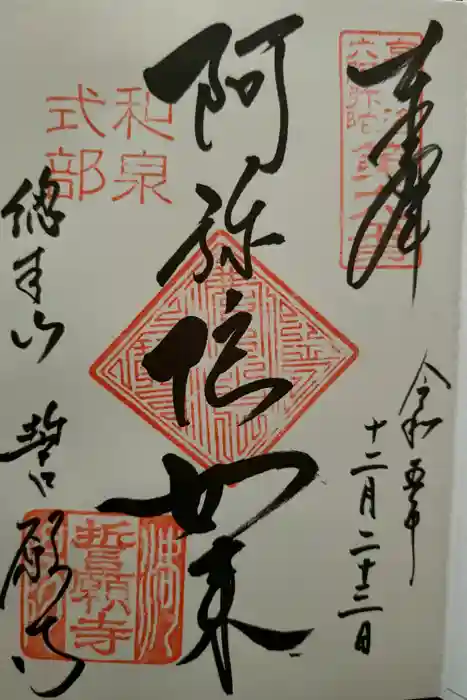 奉拝
令和五年
十二月二十二日
阿弥陀如来
和泉
式部
總本山 誓願寺
誓願寺